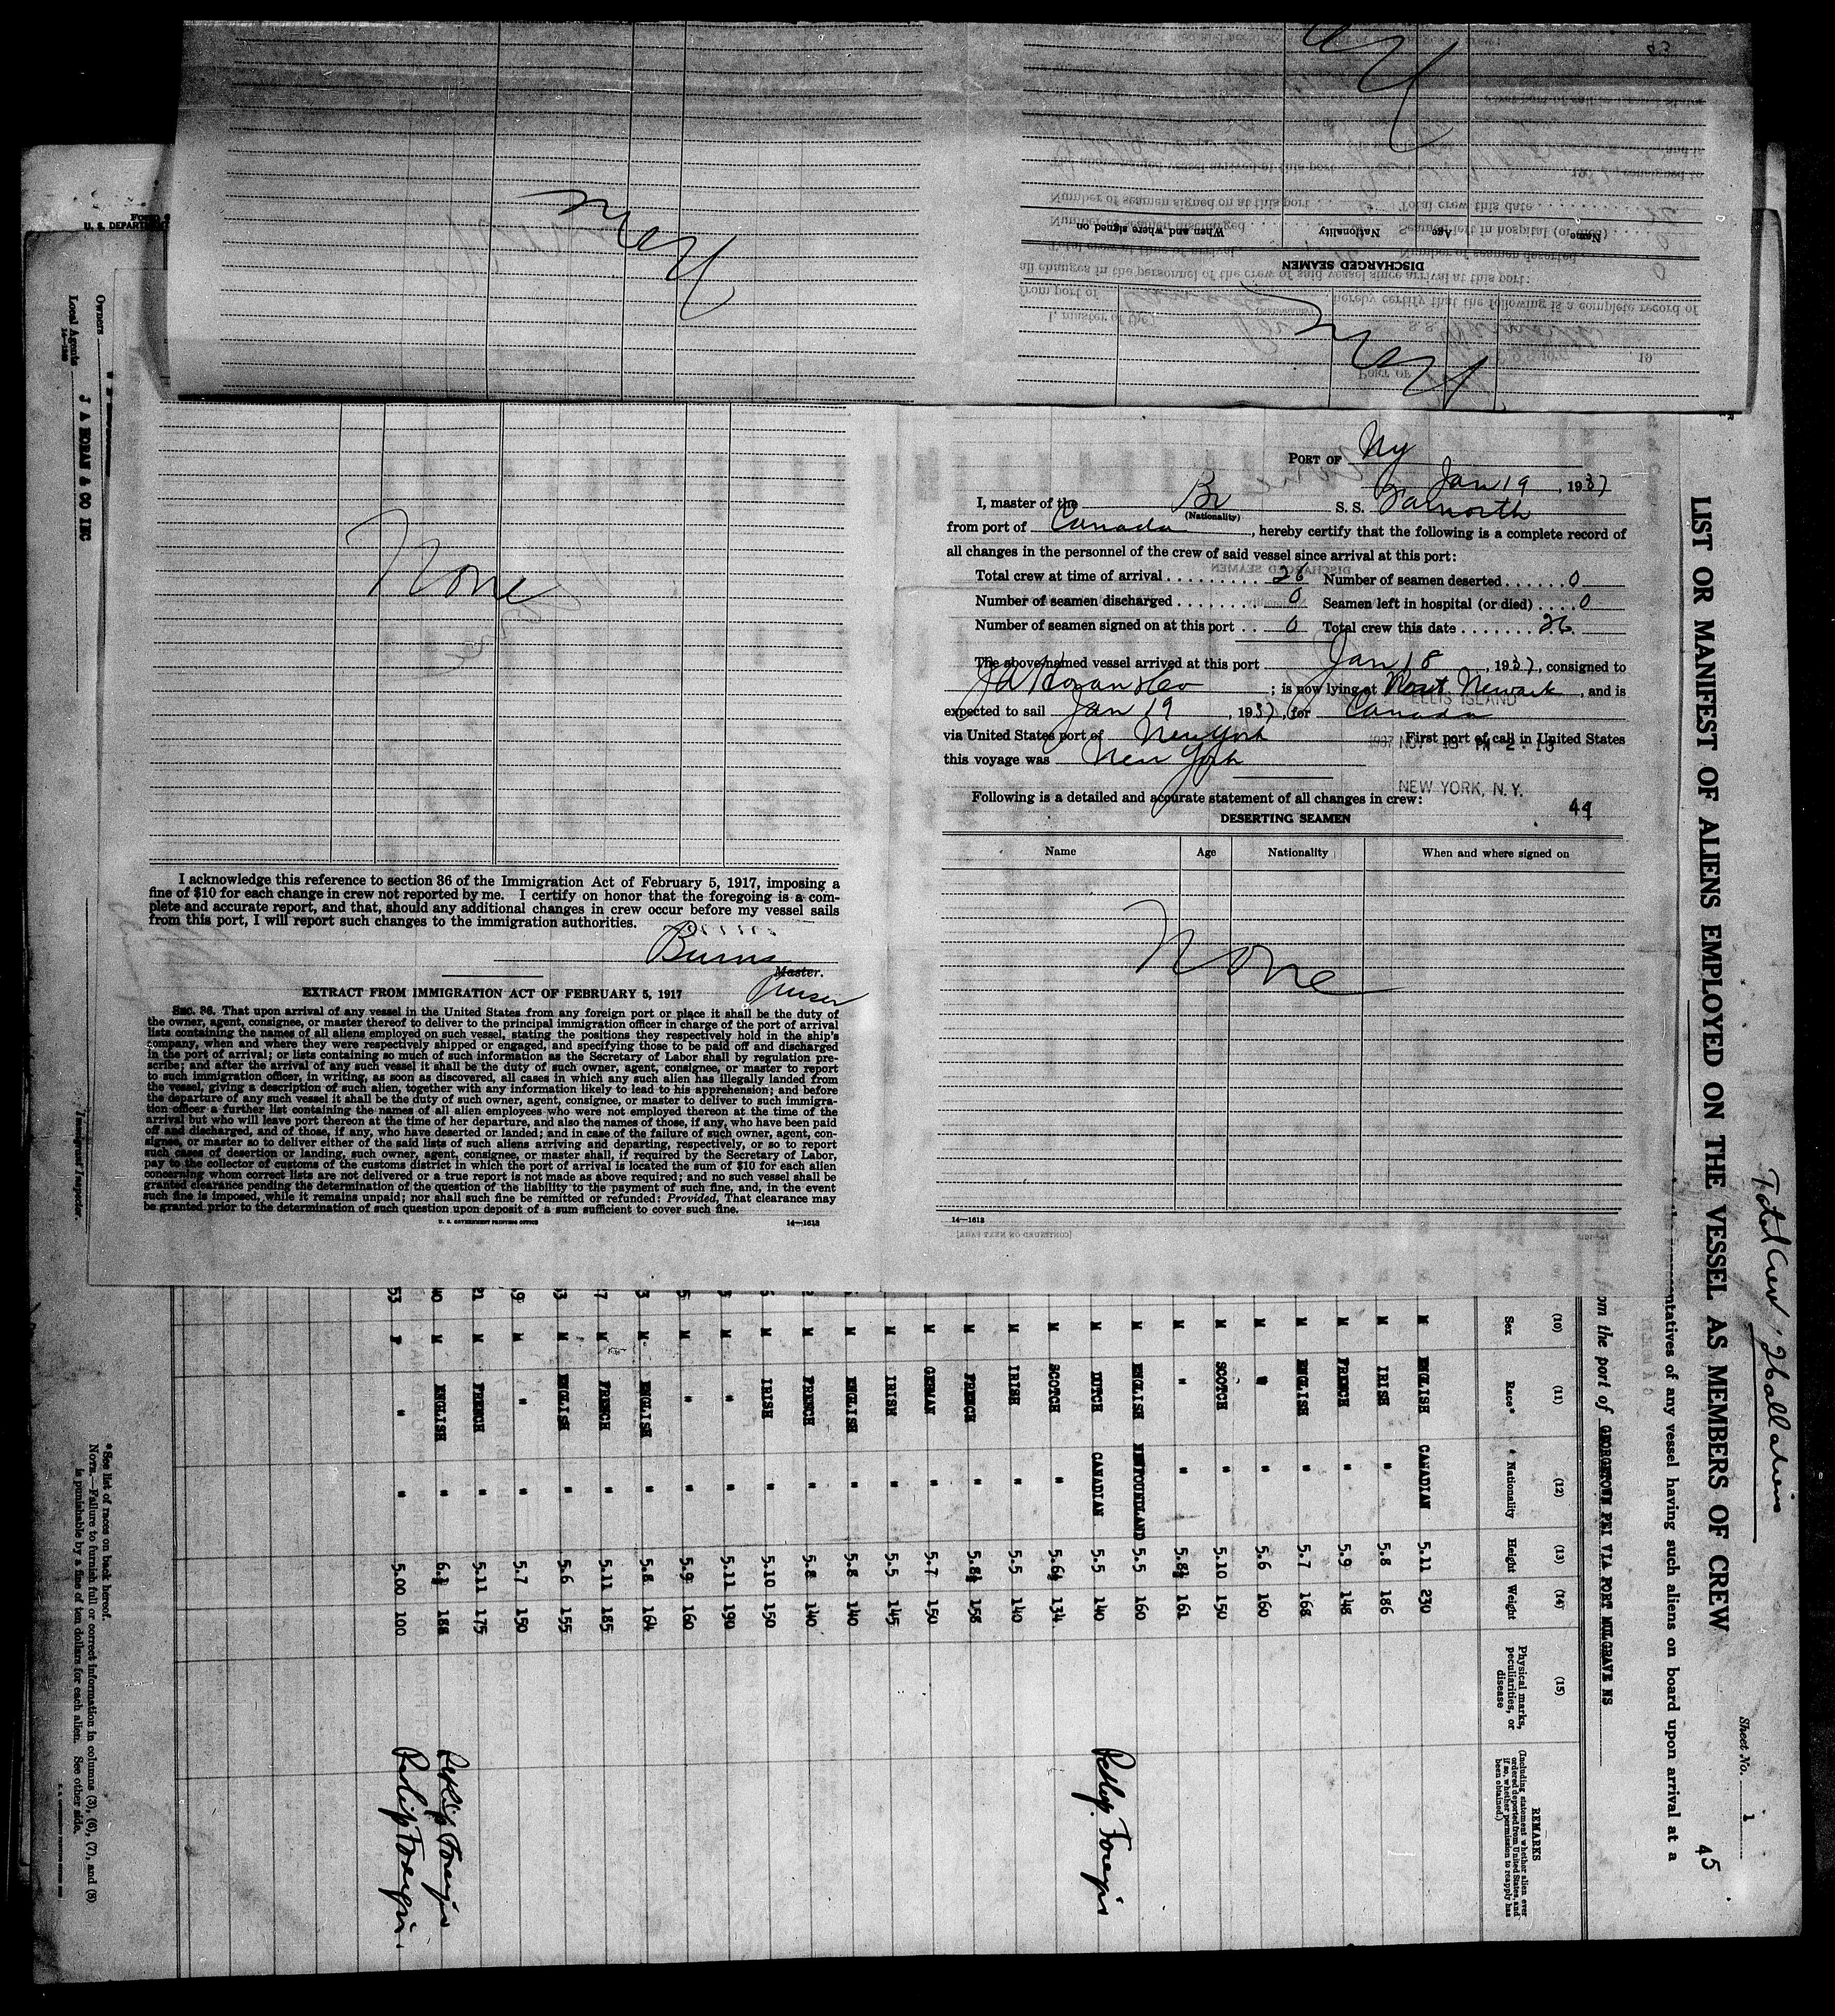 PORT OF Ny
Jan 19, 1937
I, master of the Br S. S. Farnorth
(Nationality)
from port of Canada, hereby certify that the following is a complete record of
all changes in the personnel of the crew of said vessel since arrival at this port:
Total crew at time of arrival 26 Number of seamen deserted 0
Number of seamen discharged 0 Seamen left in hospital (or died) 0
Number of seamen signed on at this port 0 Total crew this date 26
The above-named vessel arrived at this port Jan 18, 1937, consigned to
; is now lying at Port Newark, and is
ELLIS ISLAND
expected to sail Jan 19, 1937, for Canada
via United States port of New York First port of call in United States
1937 NOV 15 PM 2:13
this voyage was New York
NEW YORK, N. Y.
Following is a detailed and accurate statement of all changes in crew:
44
DESERTING SEAMEN
Name Age Nationality When and where signed on
None
14—1613
None
I acknowledge this reference to section 36 of the Immigration Act of February 5, 1917, imposing a
fine of $10 for each change in crew not reported by me. I certify on honor that the foregoing is a com-
plete and accurate report, and that, should any additional changes in crew occur before my vessel sails
from this port, I will report such changes to the immigration authorities.
Burns
Master.
Purser
EXTRACT FROM IMMIGRATION ACT OF FEBRUARY 5, 1917
SEC. 36. That upon arrival of any vessel in the United States from any foreign port or place it shall be the duty of
the owner, agent, consignee, or master thereof to deliver to the principal immigration officer in charge of the port of arrival
lists containing the names of all aliens employed on such vessel, stating the positions they respectively hold in the ship's
company, when and where they were respectively shipped or engaged, and specifying those to be paid off and discharged
in the port of arrival; or lists containing so much of such information as the Secretary of Labor shall by regulation pre-
scribe; and after the arrival of any such vessel it shall be the duty of such owner, agent, consignee, or master to report
to such immigration officer, in writing, as soon as discovered, all cases in which any such alien has illegally landed from
the vessel, giving a description of such alien, together with any information likely to lead to his apprehension; and before
the departure of any such vessel it shall be the duty of such owner, agent, consignee, or master to deliver to such immigra-
tion officer a further list containing the names of all alien employees who were not employed thereon at the time of the
arrival but who will leave port thereon at the time of her departure, and also the names of those, if any, who have been paid
off and discharged, and of those, if any, who have deserted or landed; and in case of the failure of such owner, agent, con-
signee, or master so to deliver either of the said lists of such aliens arriving and departing, respectively, or so to report
such cases of desertion or landing, such owner, agent, consignee, or master shall, if required by the Secretary of Labor,
pay to the collector of customs of the customs district in which the port of arrival is located the sum of $10 for each alien
concerning whom correct lists are not delivered or a true report is not made as above required; and no such vessel shall be
granted clearance pending the determination of the question of the liability to the payment of such fine, and, in the event
such fine is imposed, while it remains unpaid; nor shall such fine be remitted or refunded: Provided, That clearance may
be granted prior to the determination of such question upon deposit of a sum sufficient to cover such fine.
U. S. GOVERNMENT PRINTING OFFICE 14—1613
DISCHARGED SEAMEN
Name Age Nationality When and where signed on
Total Crew, 26 all aliens
Sheet No. 1
45
LIST OR MANIFEST OF ALIENS EMPLOYED ON THE VESSEL AS MEMBERS OF CREW
of any vessel having such aliens on board upon arrival at a
the port of GEORGETOWN PEI VIA PORT MULGRAVE NS
(10) (11) (12) (13) (14) (15)
Sex Race* Nationality Height Weight Physical marks, peculiarities, or disease
REMARKS
(Including statement whether alien ever ordered deported from United States, and if so, whether permission to reapply has been obtained.)
M ENGLISH CANADIAN 5.11 230
M IRISH " 5.8 186
M FRENCH " 5.9 148
M ENGLISH " 5.7 168
M " " 5.6 160
M SCOTCH " 5.10 150
M " " 5.8½ 161
M ENGLISH NEWFOUNDLAND 5.5 160
M DUTCH CANADIAN 5.5 140
M SCOTCH " 5.6½ 134
M IRISH " 5.5 140
M FRENCH " 5.8½ 158
M GERMAN " 5.7 150
M IRISH " 5.5 145
M ENGLISH " 5.8 140
M FRENCH " 5.8 140
M IRISH " 5.10 150
M " " 5.11 190
M " " 5.9 160
M ENGLISH " 5.8 164
M FRENCH " 5.11 185
M ENGLISH " 5.6 155
M " " 5.7 150
M FRENCH " 5.11 175
M ENGLISH " 6.1 188
F " " 5.00 100
*See list of races on back hereof.
NOTE.—Failure to furnish full or correct information in columns (3), (6), (7), and (8)
is punishable by a fine of ten dollars for each alien. See other side.
Immigrant Inspector.
Owners
Local Agents J A MORAN & CO INC
14—1240
U. S. DEPARTM